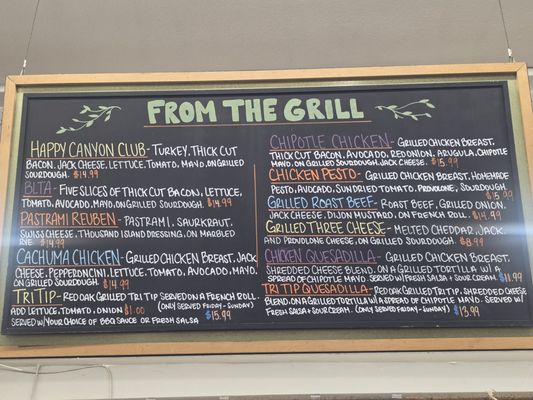 FROM THE GRILL
HAPPY CANYON CLUB- TURKEY, THICK CUT
BACON, JACK CHEESE, LETTUCE, TOMATO, MAYO, ON GRILLED
SOURDOUGH. $14.99
BLTA- FIVE SLICES OF THICK CUT BACON, LETTUCE,
TOMATO, AVOCADO, MAYO, ON GRILLED SOURDOUGH. $14.99
PASTRAMI REUBEN- PASTRAMI, SAURKRAUT,
SWISS CHEESE, THOUSAND ISLAND DRESSING, ON MARBLED
RYE $14.99
CACHUMA CHICKEN- GRILLED CHICKEN BREAST, JACK
CHEESE, PEPPERONCINI, LETTUCE, TOMATO, AVOCADO, MAYO,
ON GRILLED SOURDOUGH. $14.99
TRI TIP- RED OAK GRILLED TRI TIP SERVED ON A FRENCH ROLL.
ADD LETTUCE, TOMATO, ONION $1.00 (ONLY SERVED FRIDAY-SUNDAY)
SERVED W/YOUR CHOICE OF BBQ SAUCE OR FRESH SALSA $15.99
CHIPOTLE CHICKEN- GRILLED CHICKEN BREAST,
THICK CUT BACON, AVOCADO, RED ONION, ARUGULA, CHIPOTLE
MAYO, ON GRILLED SOURDOUGH, JACK CHEESE. $15.99
CHICKEN PESTO- GRILLED CHICKEN BREAST, HOMEMADE
PESTO, AVOCADO, SUN DRIED TOMATO, PROVOLONE, SOURDOUGH.
$15.99
GRILLED ROAST BEEF- ROAST BEEF, GRILLED ONION,
JACK CHEESE, DIJON MUSTARD, ON FRENCH ROLL. $14.99
GRILLED THREE CHEESE- MELTED CHEDDAR, JACK,
AND PROVOLONE CHEESE, ON GRILLED SOURDOUGH. $8.99
CHICKEN QUESADILLA- GRILLED CHICKEN BREAST,
SHREDDED CHEESE BLEND, ON A GRILLED TORTILLA W/ A
SPREAD OF CHIPOTLE MAYO. SERVED W/ FRESH SALSA + SOUR CREAM. $11.99
TRI TIP QUESADILLA- RED OAK GRILLED TRI TIP, SHREDDED CHEESE
BLEND, ON A GRILLED TORTILLA W/ A SPREAD OF CHIPOTLE MAYO. SERVED W/
FRESH SALSA + SOUR CREAM. (ONLY SERVED FRIDAY-SUNDAY) $13.99